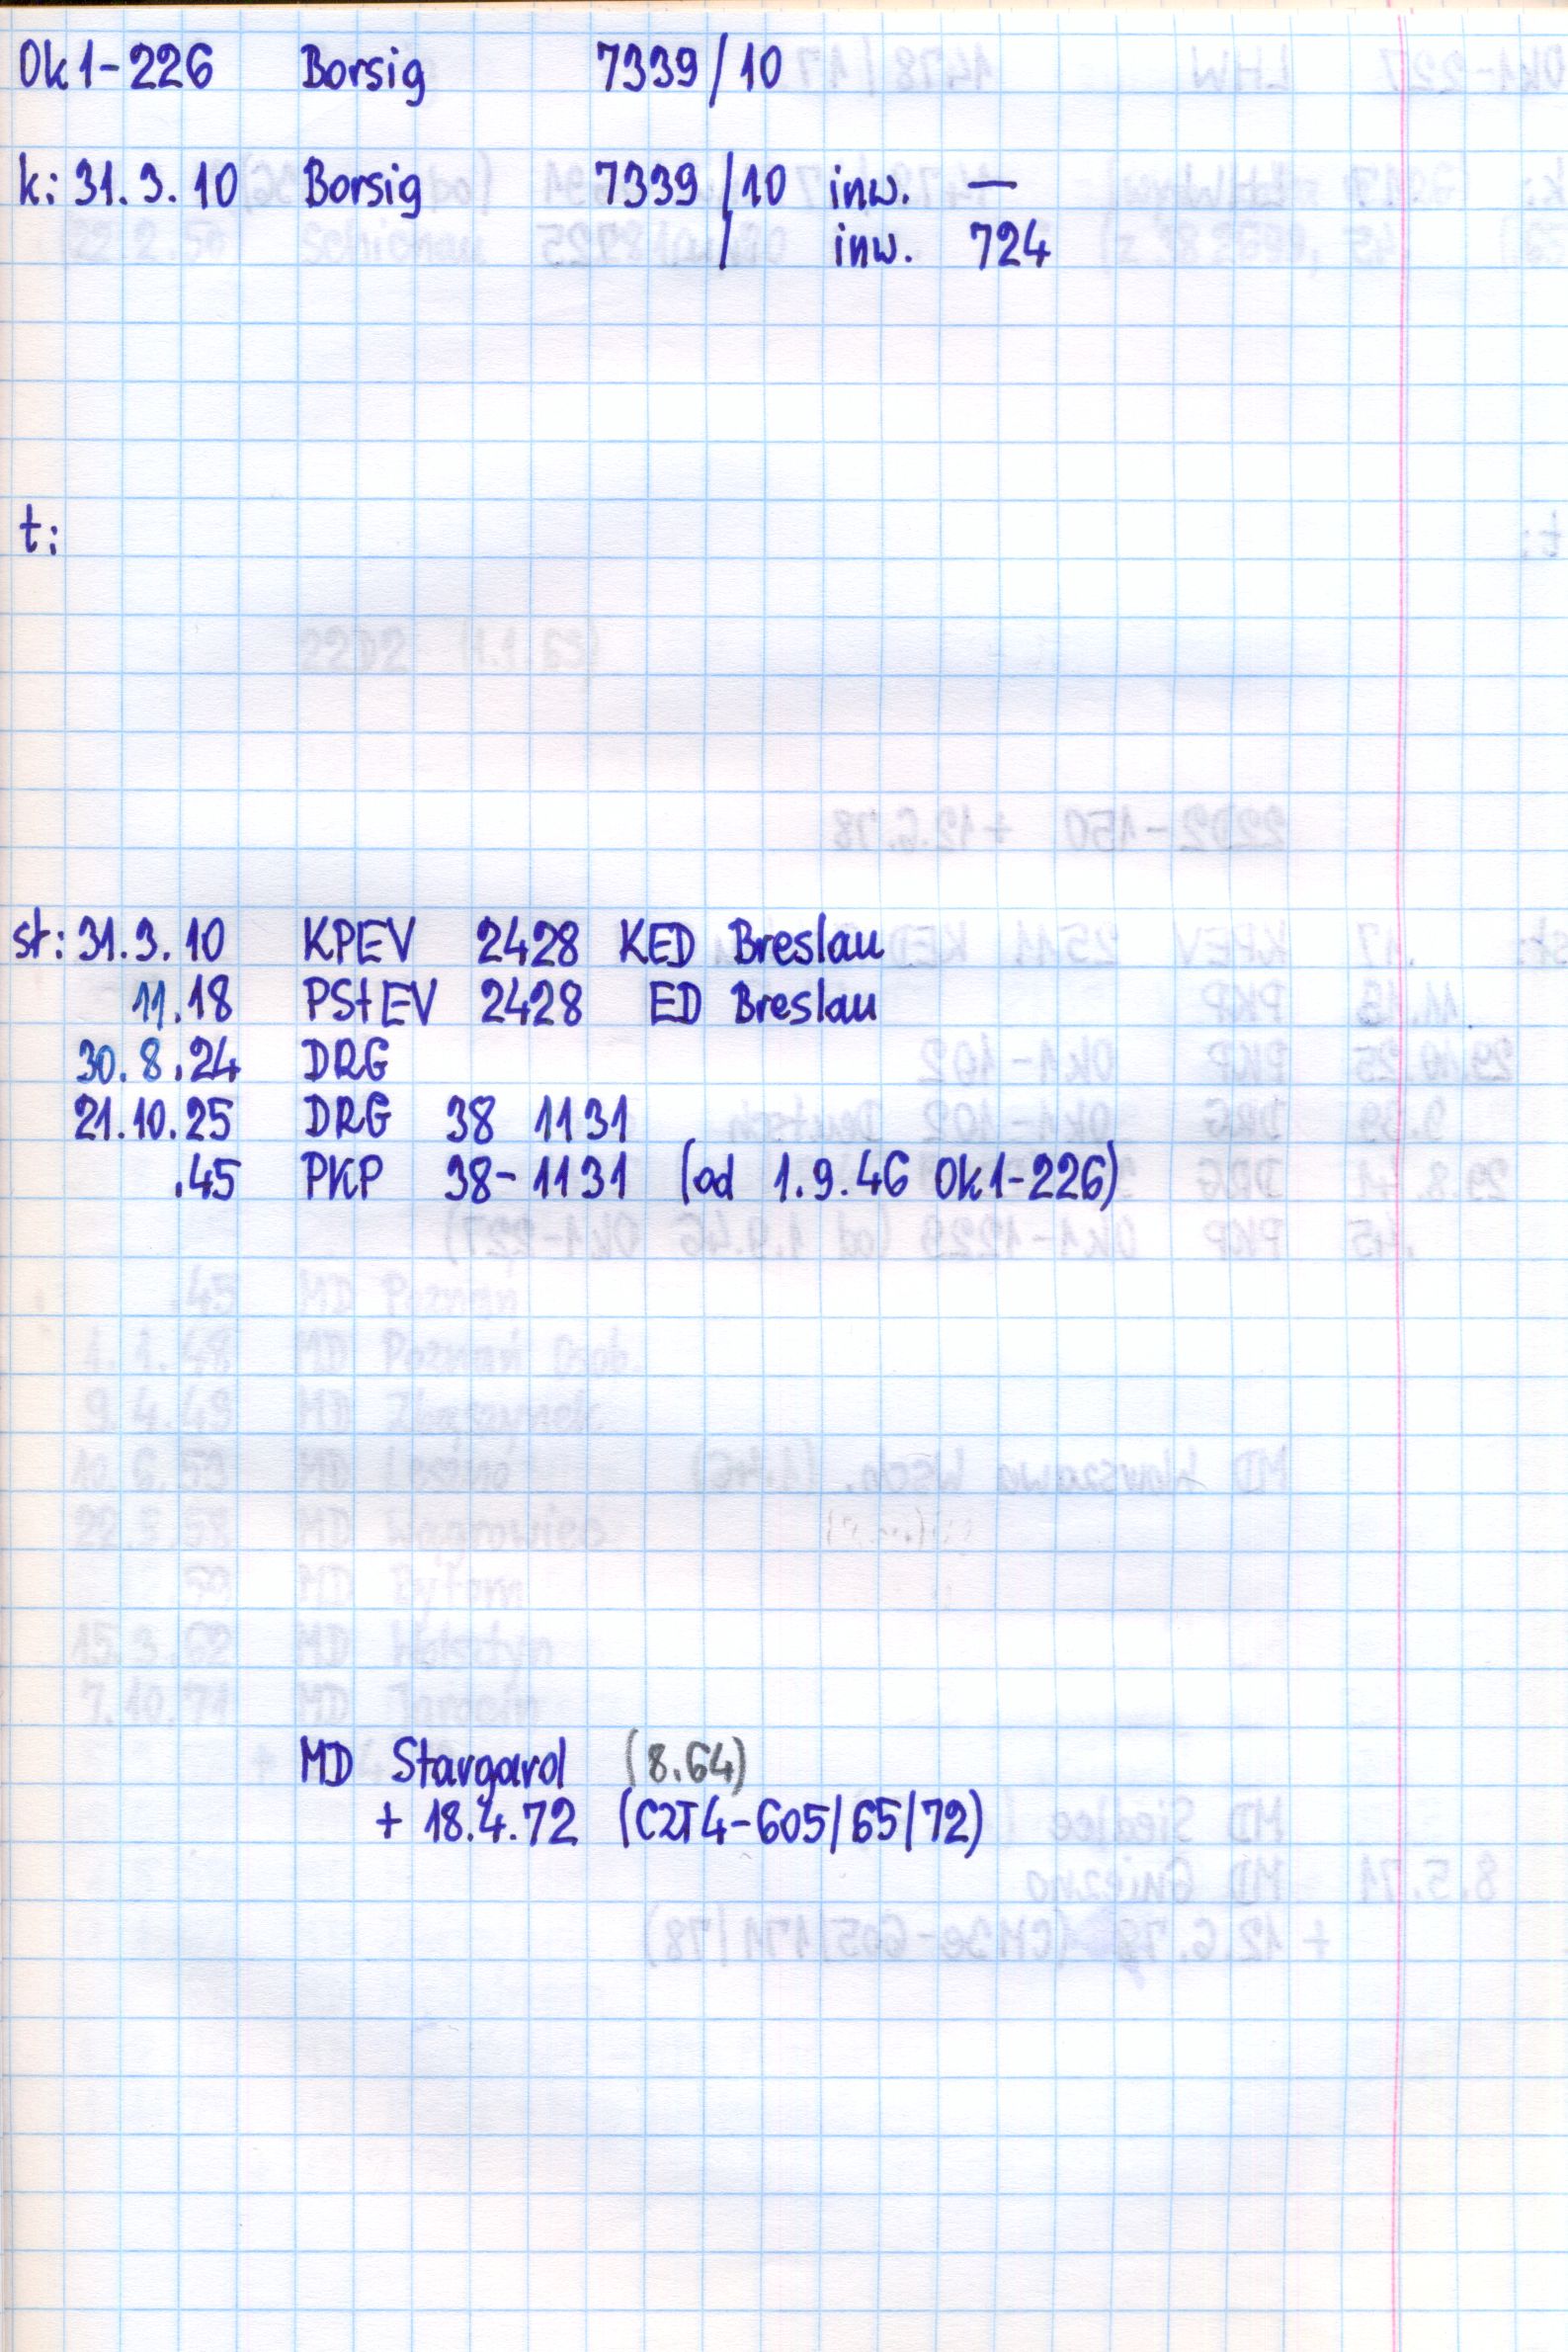 Ok1-226 Borsig 7339/10
k: 31.3.10 Borsig 7339/10 inw. —
/ inw. 724
t:
st: 31.3.10 KPEV 2428 KED Breslau
11.18 PStEV 2428 ED Breslau
30.8.24 DRG
21.10.25 DRG 38 1131
.45 PKP 38-1131 (od 1.9.46 Ok1-226)
MD Stargard (8.64)
+ 18.4.72 (CZT4-605/65/72)